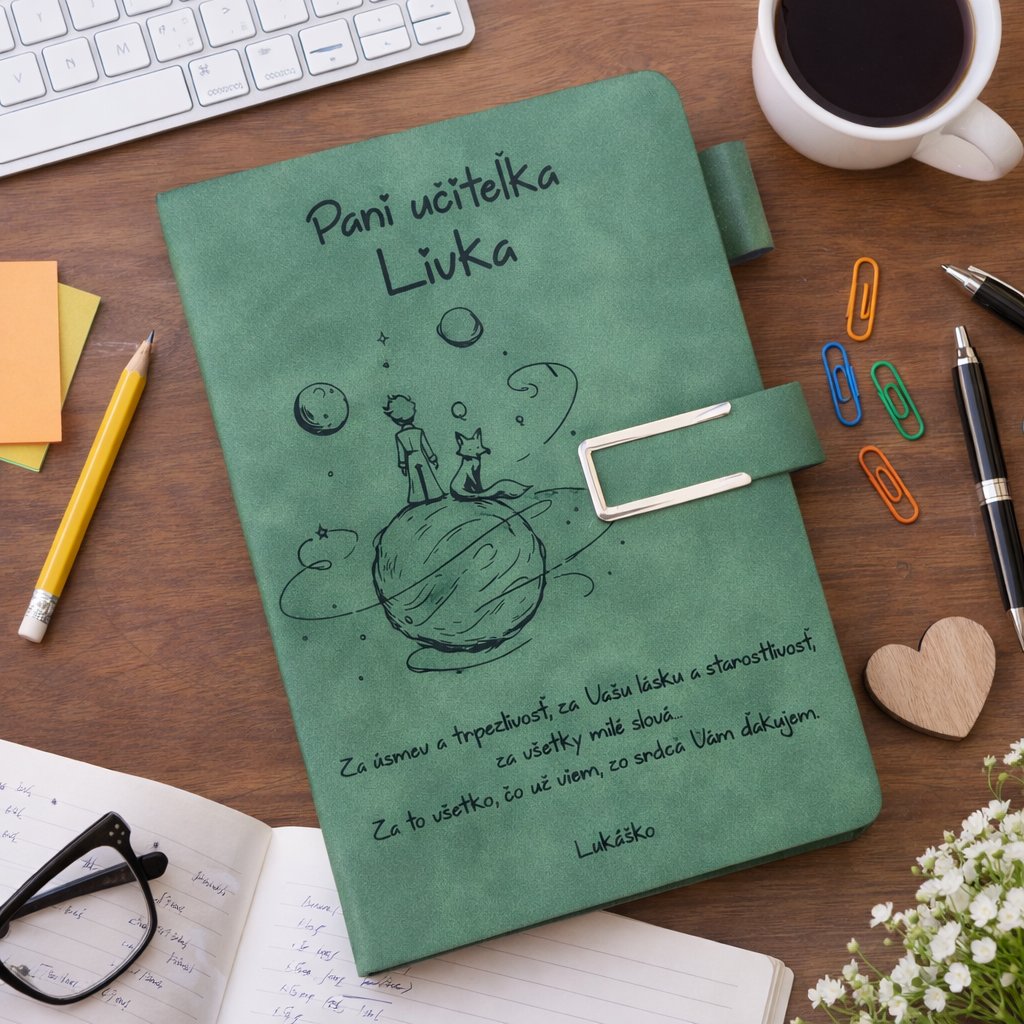 V
N
M
⌘
Pani učiteľka
Livka
Za úsmev a trpezlivosť, za Vašu lásku a starostlivosť,
za všetky milé slová...
Za to všetko, čo už viem, zo srdca Vám ďakujem.
Lukáško